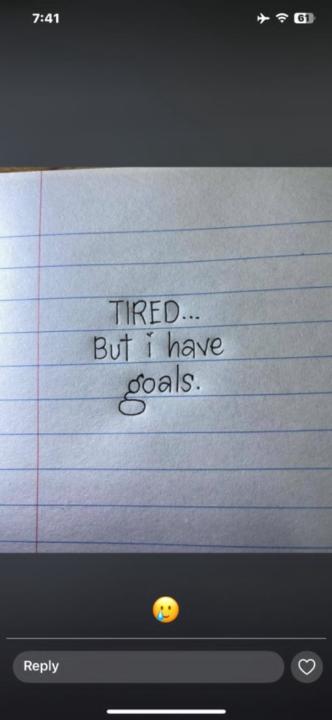 7:41
61
TIRED...
But i have
goals.
🥲
Reply